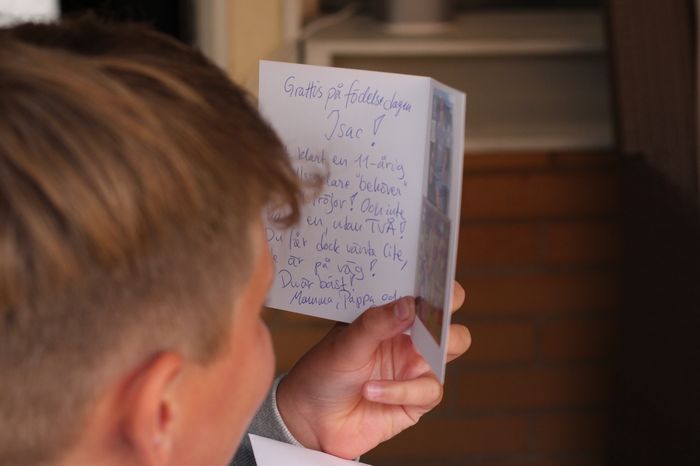 Grattis på födelsedagen
Isac!
klart en 11-årig
"behöver"
tröjor! Och inte
en, utan TVÅ!
Du får dock vänta lite,
är på väg!
Du är bäst!
Mamma, Pappa och